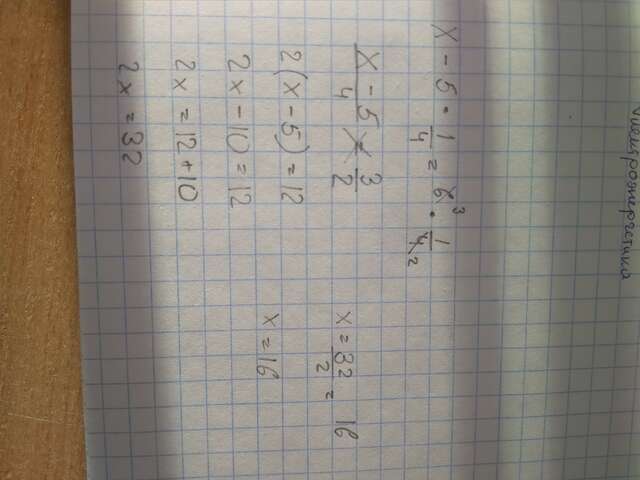 x - 5 · 1/4 = 6³ · 1/4₂
x - 5/4 = 3/2
2(x - 5) = 12
2x - 10 = 12
2x = 12 + 10
2x = 32
x = 32/2 = 16
x = 16